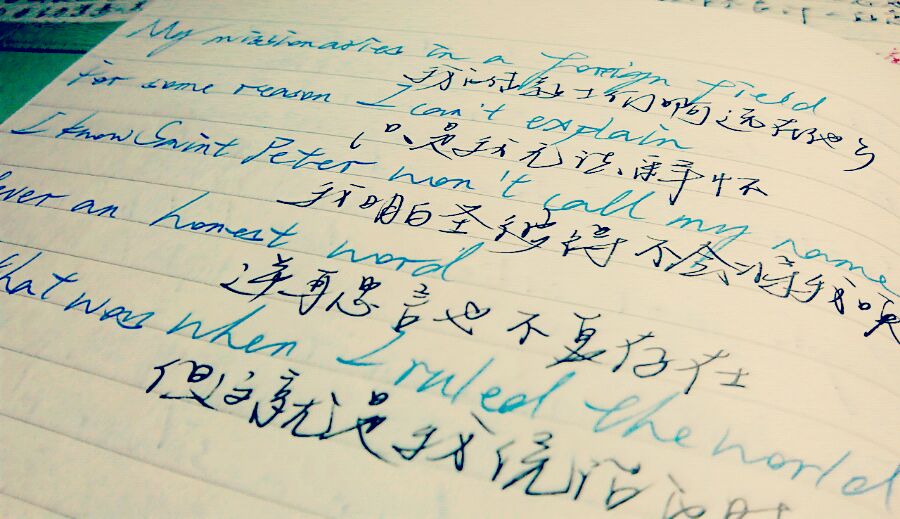 My missionaries in a foreign field
我的传教士们啊远在他乡
For some reason I can't explain
只是我无法释怀
I know Saint Peter won't call my name
我明白圣彼得不会将我唤
ever an honest word
逆再忠言也不复存在
that was when I ruled the world
但这就是我统治